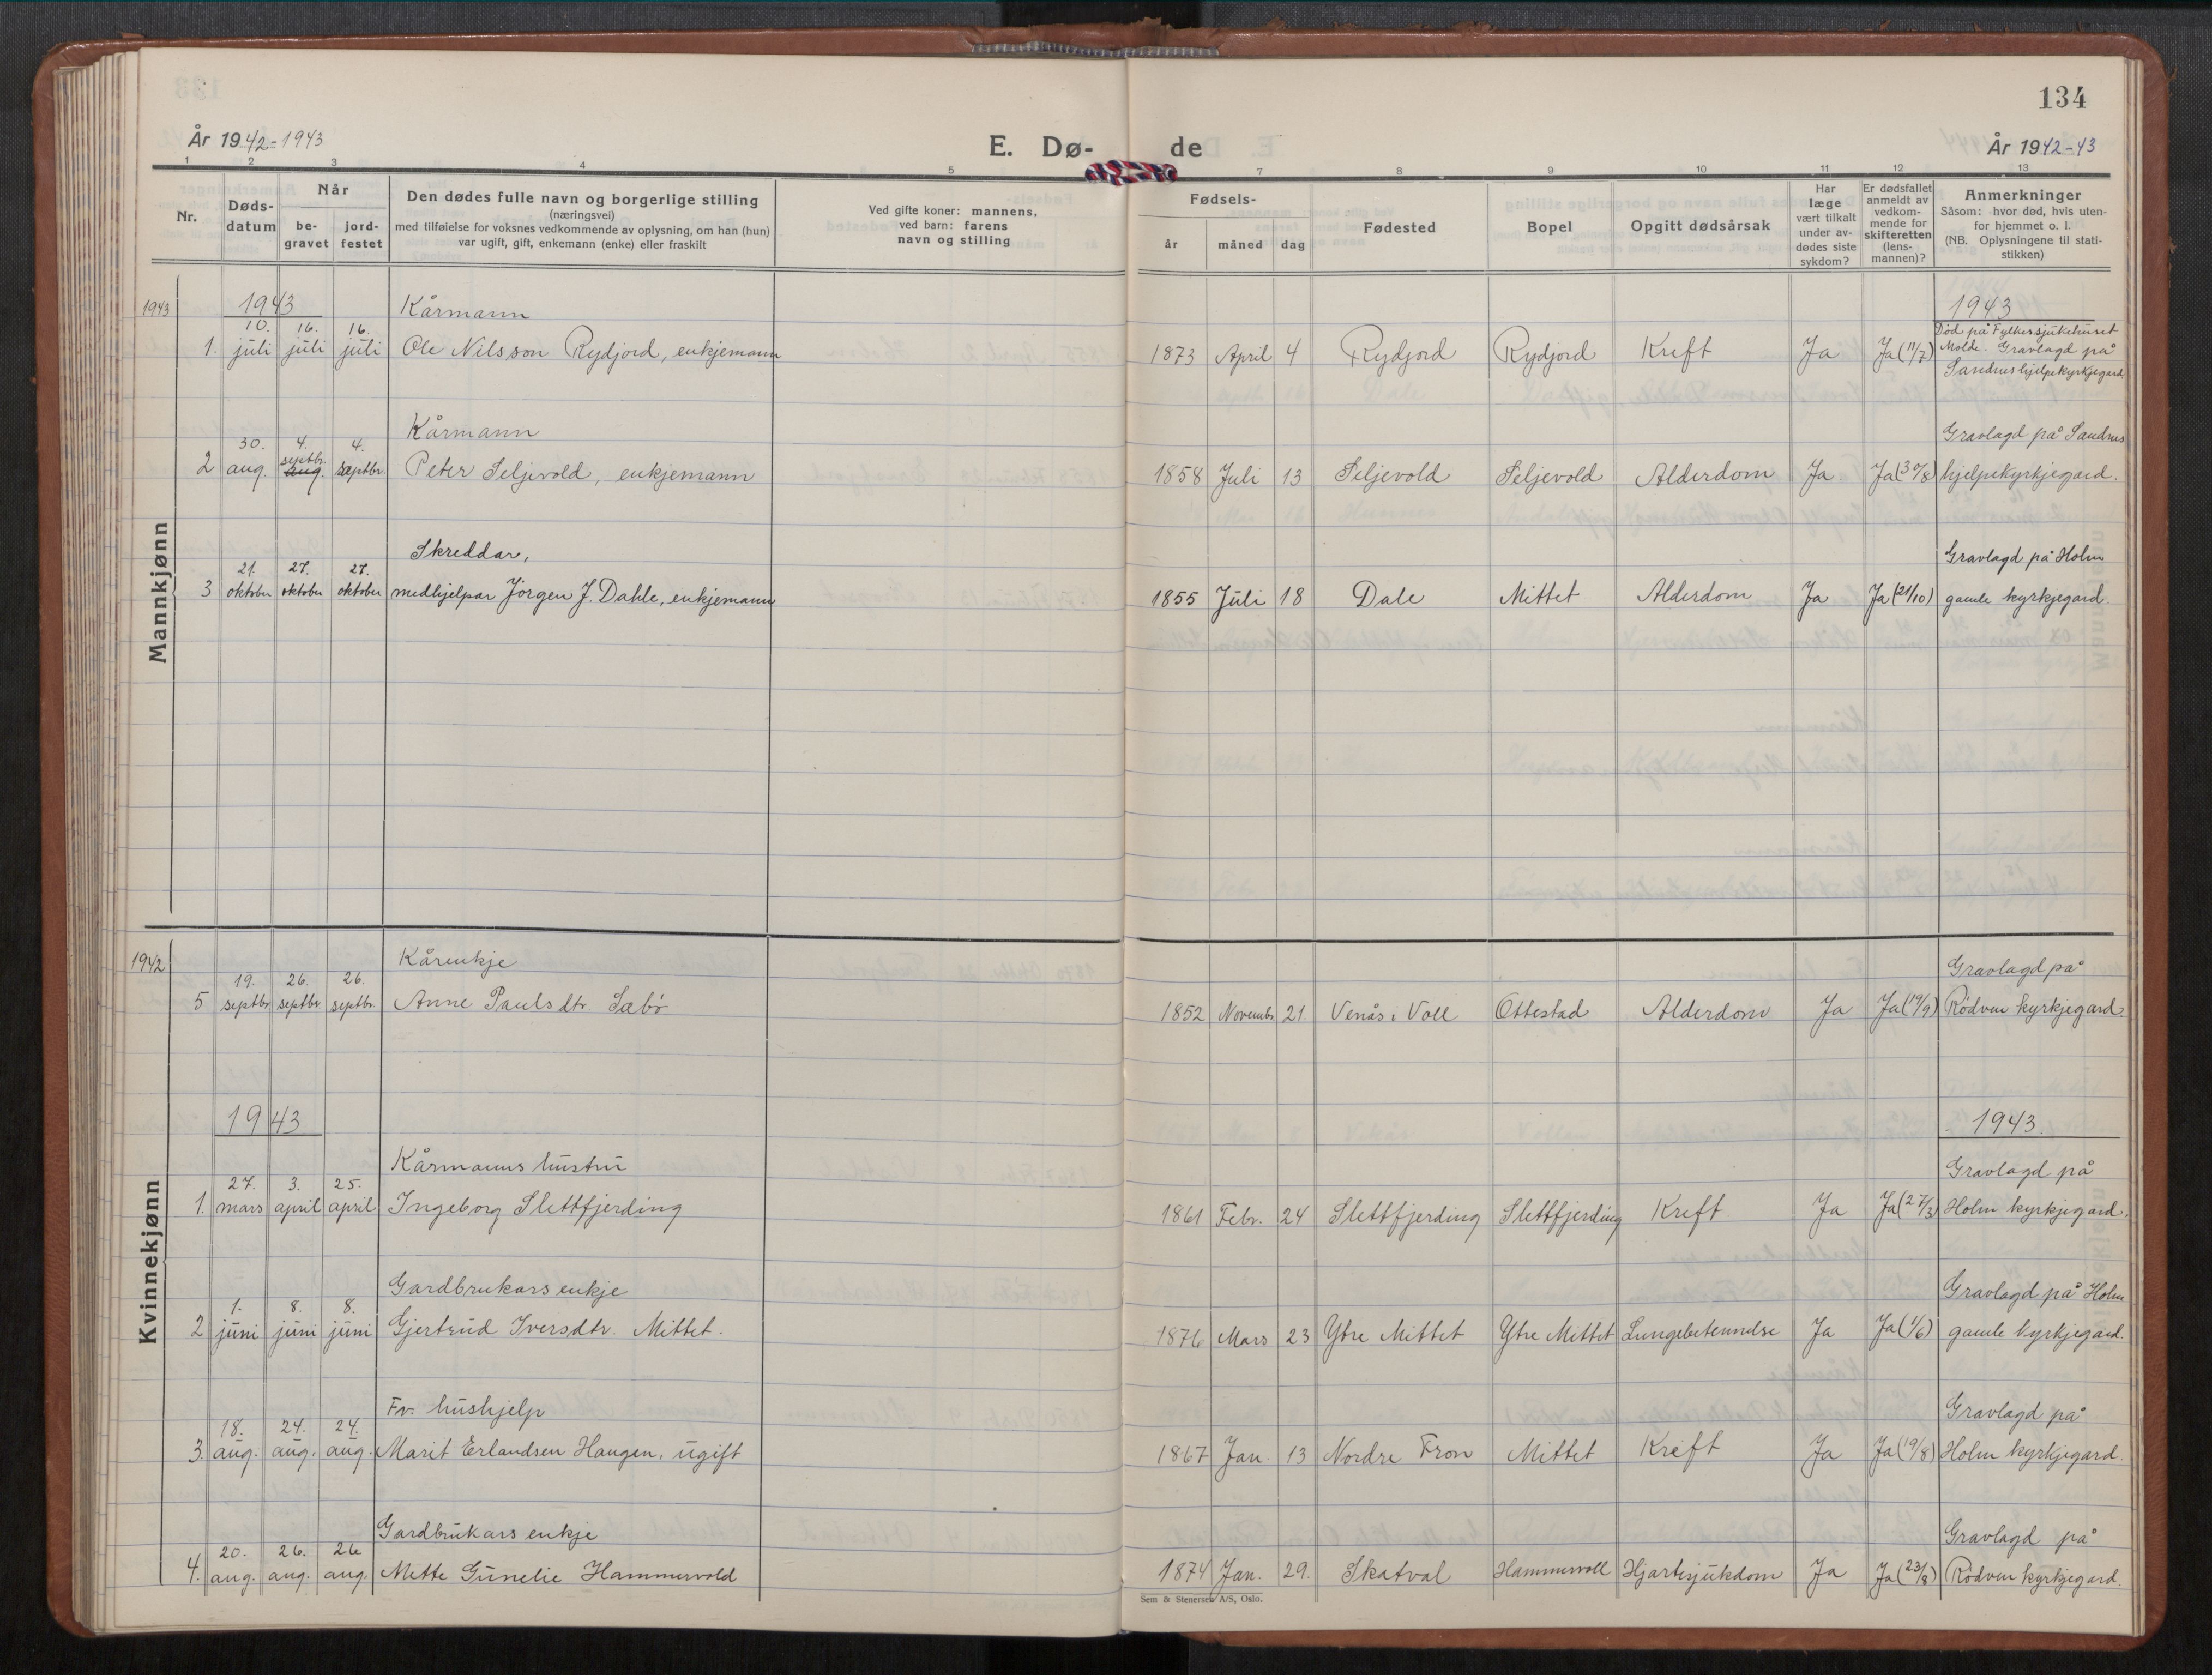 134
År 1942-1943
E. Dø-
de
År 1942-43
1 2 3 4 5 7 8 9 10 11 12 13
Nr.
Døds-
datum
Når
be-
gravet
jord-
festet
Den dødes fulle navn og borgerlige stilling
(næringsvei)
med tilføielse for voksnes vedkommende av oplysning, om han (hun)
var ugift, gift, enkemann (enke) eller fraskilt
Ved gifte koner: mannens,
ved barn: farens
navn og stilling
Fødsels-
år måned dag
Fødested
Bopel
Opgitt dødsårsak
Har
læge
vært tilkalt
under av-
dødes siste
sykdom?
Er dødsfallet
anmeldt av
vedkom-
mende for
skifteretten
(lens-
mannen)?
Anmerkninger
Såsom: hvor død, hvis uten-
for hjemmet o. l.
(NB. Oplysningene til stati-
stikken)
Mannkjønn
1943 1943 Kårmann 1943
10. 16. 16. Død på Fylkessjukehuset
1. juli juli juli Ole Nilsson Rydjord, enkjemann 1873 April 4 Rydjord Rydjord Kreft Ja Ja (11/7) Molde. Gravlagd på
Sandnes hjelpekyrkjegard.
Kårmann Gravlagd på Sandnes
30. 4. 4.
septbr.
2 aug. aug. septbr. Peter Seljevold, enkjemann 1858 Juli 13 Seljevold Seljevold Alderdom Ja Ja (30/8) hjelpekyrkjegard.
Skreddar, Gravlagd på Holm
21. 27. 27.
3 oktober oktober oktober medhjelpar Jörgen J. Dahle, enkjemann 1855 Juli 18 Dale Mittet Alderdom Ja Ja (21/10) gamle kyrkjegard.
Kvinnekjønn
1942 Kårenkje Gravlagd på
19. 26. 26.
5 septbr. septbr. septbr. Anne Paulsdtr. Sæbö 1852 Novembr. 21. Venås i Voll Ottestad Alderdom Ja Ja (19/9) Rödven kyrkjegard.
1943 1943.
Kårmanns hustru Gravlagd på
27. 3. 25.
1. mars april april Ingeborg Slettfjerding 1861 Febr. 24 Slettfjerding Slettfjerding Kreft Ja Ja (27/3) Holm kyrkjegard.
Gardbrukars enkje Gravlagd på Holm
1. 8. 8.
2 juni juni juni Gjertrud Iversdtr. Mittet. 1876 Mars 23 Ytre Mittet Ytre Mittet Lungebetennelse Ja Ja (1/6) gamle kyrkjegard.
Fv. hushjelp Gravlagd på
18. 24. 24.
3. aug. aug. aug. Marit Erlandsen Haugen, ugift 1867 Jan. 13 Nordre Fron Mittet Kreft Ja Ja (19/8) Holm kyrkjegard.
Gardbrukars enkje Gravlagd på
20. 26. 26
4. aug. aug. aug. Mette Gunelie Hammervold 1874 Jan. 29. Skatval Hammervoll Hjartesjukdom Ja Ja (23/8) Rödven kyrkjegard.
Sem & Stenersen A/S, Oslo.